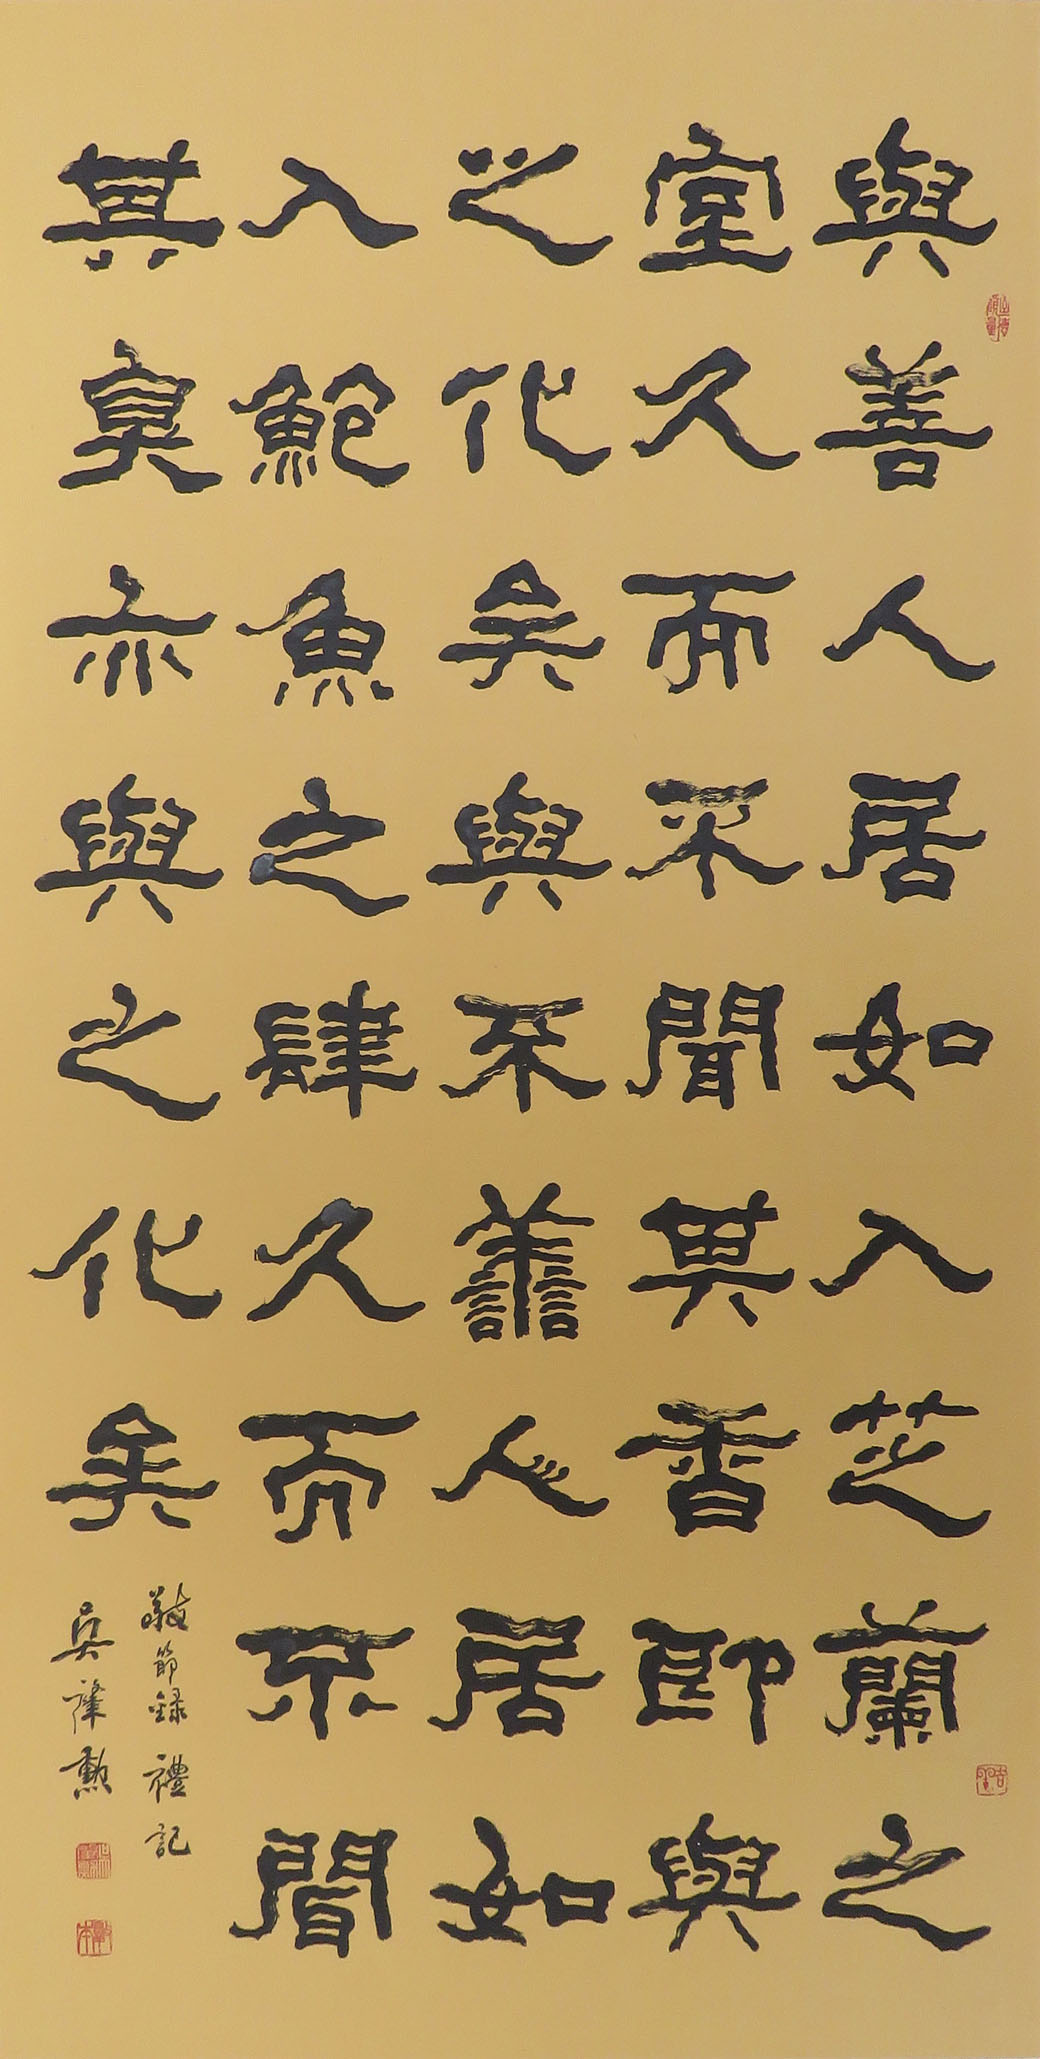 與善人居如入芝蘭之
室久而不聞其香即與
之化矣與不善人居如
入鮑魚之肆久而不聞
其臭亦與之化矣
敬節錄禮記
吳肇勲